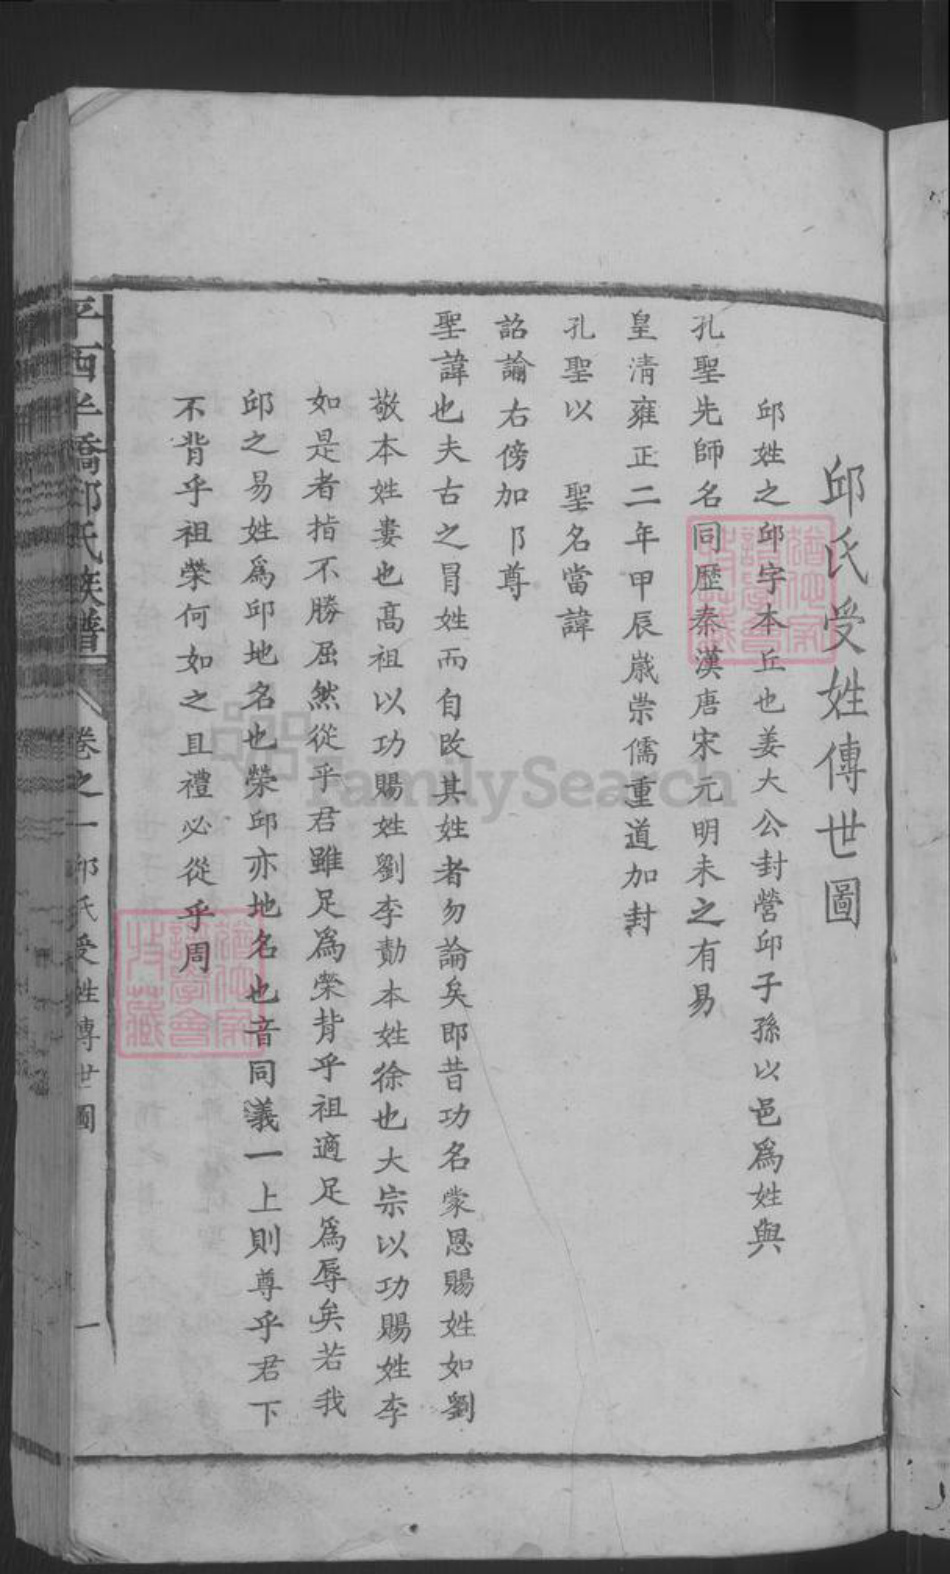 邱氏受姓傳世圖
邱姓之邱字本丘也姜大公封營邱子孫以邑爲姓與
孔聖先師名同歷秦漢唐宋元明未之有易
皇清雍正二年甲辰歲崇儒重道加封
孔聖以 聖名當諱
詔諭右傍加阝尊
聖諱也夫古之冒姓而自改其姓者勿論矣即昔功名蒙恩賜姓如劉
敬本姓婁也高祖以功賜姓劉李勣本姓徐也大宗以功賜姓李
如是者指不勝屈然從乎君雖足爲榮背乎祖適足爲辱矣若我
邱之易姓爲邱地名也營邱亦地名也音同義一上則尊乎君下
不背乎祖榮何如之且禮必從乎周
平西半橋邱氏族譜
卷之一邱氏受姓傳世圖
一
FamilySearch